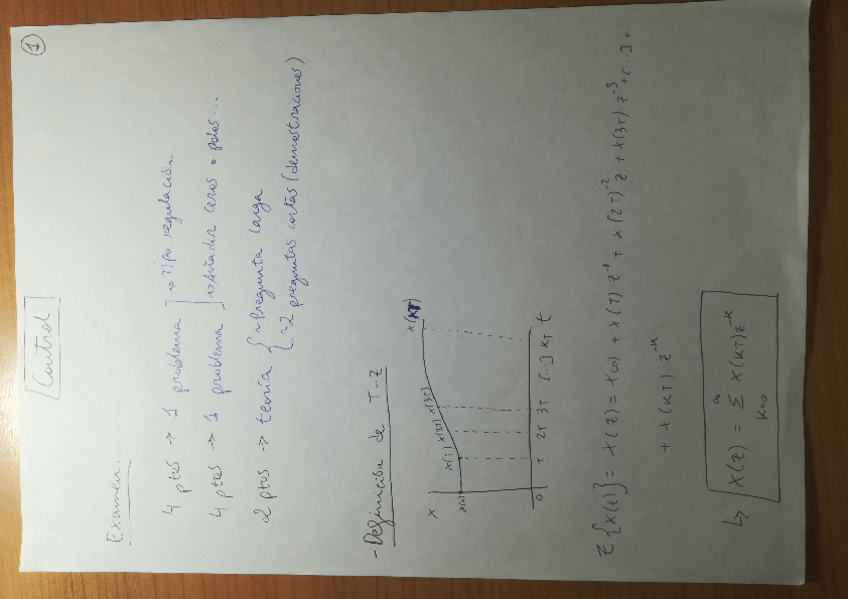 ①
Control
Examen:
4 ptos → 1 problema → Tipo regulación
4 ptos → 1 problema → Añadir ceros o polos...
2 ptos → teoría { ~ Pregunta larga
~ 2 preguntas cortas (demostraciones)
- Definición de T-Z
X
X(0) X(T) X(2T) X(3T) X(KT)
0 T 2T 3T [...] KT t
Z{X(t)} = X(z) = X(0) + X(T) z⁻¹ + X(2T)⁻² z + X(3T)·z⁻³ + [...] +
+ X(KT)·z⁻ᴷ
↳ X(z) = ∞ Σ K=0 X(KT) z⁻ᴷ